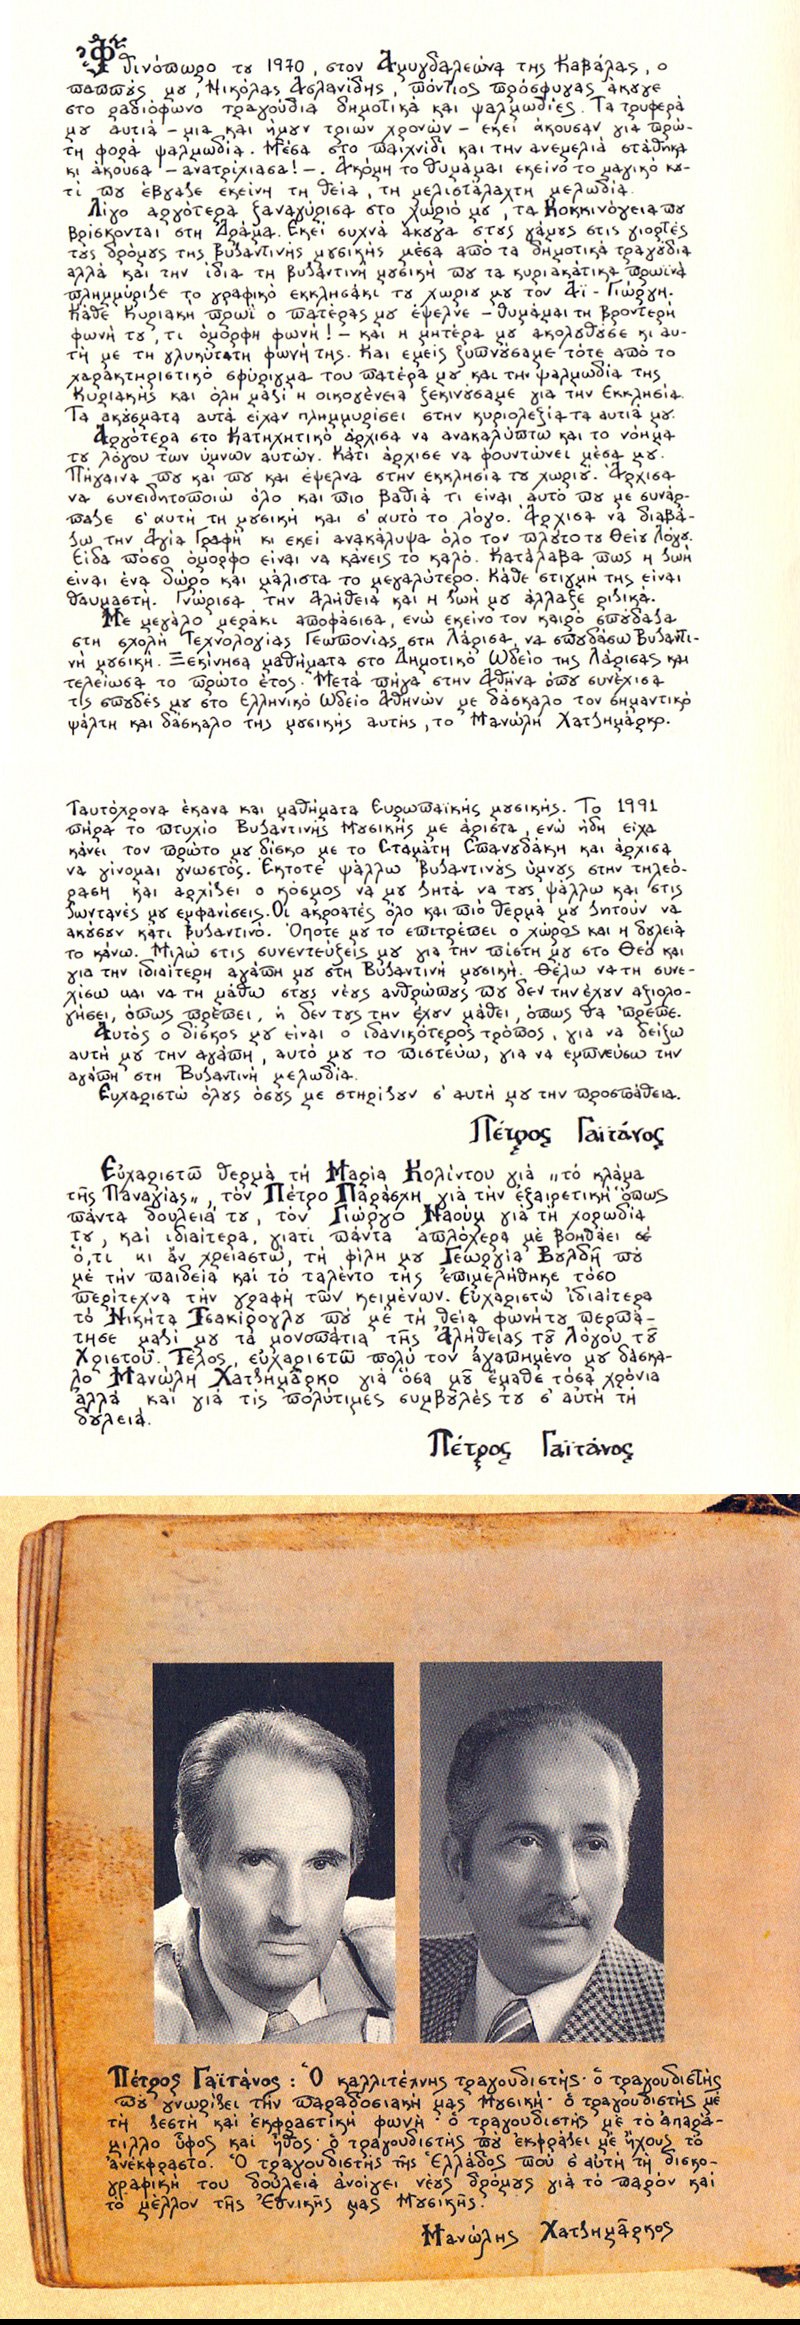 Φθινόπωρο του 1970, στον Αμυγδαλεώνα της Καβάλας, ο
παππούς μου, Νικόλας Ασλανίδης, πόντιος πρόσφυγας άκουγε
στο ραδιόφωνο τραγούδια δημοτικά και ψαλμωδίες. Τα τρυφερά
μου αυτιά – μια και ήμουν τριών χρονών – εκεί άκουσαν για πρώ-
τη φορά ψαλμωδία. Μέσα στο παιχνίδι και την ανεμελιά στάθηκα
κι άκουσα – ανατρίχιασα! –. Ακόμη το θυμάμαι εκείνο το μαγικό κου-
τί που έβγαζε εκείνη τη θεία, τη μελιστάλαχτη μελωδία.
Λίγο αργότερα ξαναγύρισα στο χωριό μου, τα Κοκκινόγεια που
βρίσκονται στη Δράμα. Εκεί συχνά άκουγα στους γάμους στις γιορτές
τους δρόμους της βυζαντινής μουσικής μέσα από τα δημοτικά τραγούδια
αλλά και την ίδια τη βυζαντινή μουσική που τα κυριακάτικα πρωινά
πλημμύριζε το γραφικό εκκλησάκι του χωριού μου τον Άϊ - Γιώργη.
Κάθε Κυριακή πρωί ο πατέρας μου έψελνε – θυμάμαι τη βροντερή
φωνή του, τι όμορφη φωνή! – και η μητέρα μου ακολουθούσε κι αυ-
τή με τη γλυκύτατη φωνή της. Και εμείς ξυπνούσαμε τότε από το
χαρακτηριστικό σφύριγμα του πατέρα μου και την ψαλμωδία της
Κυριακής και όλη μαζί η οικογένεια ξεκινούσαμε για την Εκκλησία.
Τα ακούσματα αυτά είχαν πλημμυρίσει στην κυριολεξία τα αυτιά μου.
Αργότερα στο Κατηχητικό άρχισα να ανακαλύπτω και το νόημα
του λόγου των ύμνων αυτών. Κάτι άρχισε να φουντώνει μέσα μου.
Πήγαινα που και που και έψελνα στην εκκλησία του χωριού. Άρχισα
να συνειδητοποιώ όλο και πιο βαθιά τι είναι αυτό που με συνάρ-
παζε σ' αυτή τη μουσική και σ' αυτό το λόγο. Άρχισα να διαβά-
ζω την Αγία Γραφή κι εκεί ανακάλυψα όλο τον πλούτο του Θείου Λόγου.
Είδα πόσο όμορφο είναι να κάνεις το καλό. Κατάλαβα πως η ζωή
είναι ένα δώρο και μάλιστα το μεγαλύτερο. Κάθε στιγμή της είναι
θαυμαστή. Γνώρισα την Αλήθεια και η ζωή μου άλλαξε ριζικά.
Με μεγάλο μεράκι αποφάσισα, ενώ εκείνο τον καιρό σπούδαζα
στη σχολή Τεχνολογίας Γεωπονίας στη Λάρισα, να σπουδάσω Βυζαντι-
νή μουσική. Ξεκίνησα μαθήματα στο Δημοτικό Ωδείο της Λάρισας και
τελείωσα το πρώτο έτος. Μετά πήγα στην Αθήνα όπου συνέχισα
τις σπουδές μου στο Ελληνικό Ωδείο Αθηνών με δάσκαλο τον σημαντικό
ψάλτη και δάσκαλο της μουσικής αυτής, το Μανώλη Χατζημάρκο.
Ταυτόχρονα έκανα και μαθήματα Ευρωπαϊκής μουσικής. Το 1991
πήρα το πτυχίο Βυζαντινής Μουσικής με άριστα, ενώ ήδη είχα
κάνει τον πρώτο μου δίσκο με το Σταμάτη Σπανουδάκη και άρχισα
να γίνομαι γνωστός. Έκτοτε ψάλλω βυζαντινούς ύμνους στην τηλεό-
ραση και αρχίζει ο κόσμος να μου ζητά να τους ψάλλω και στις
ζωντανές μου εμφανίσεις. Οι ακροατές όλο και πιό θερμά μου ζητούν να
ακούσουν κάτι βυζαντινό. Όποτε μου το επιτρέπει ο χώρος και η δουλειά
το κάνω. Μιλώ στις συνεντεύξεις μου για την πίστη μου στο Θεό και
για την ιδιαίτερη αγάπη μου στη Βυζαντινή μουσική. Θέλω να τη συνε-
χίσω και να τη μάθω στους νέους ανθρώπους που δεν την έχουν αξιολο-
γήσει, όπως πρέπει, ή δεν τους την έχουν μάθει, όπως θα 'πρεπε.
Αυτός ο δίσκος μου είναι ο ιδανικότερος τρόπος, για να δείξω
αυτή μου την αγάπη, αυτό μου το πιστεύω, για να εμπνεύσω την
αγάπη στη Βυζαντινή μελωδία.
Ευχαριστώ όλους όσους με στηρίζουν σ' αυτή μου την προσπάθεια.
Πέτρος Γαϊτάνος
Εὐχαριστῶ θερμὰ τή Μαρία Κολίντου γιά „τό κλάμα
τῆς Παναγίας„, τόν Πέτρο Παράσχη γιά τήν ἐξαιρετική ὅπως
πάντα δουλειά του, τόν Γιώργο Ναούμ γιά τή χορωδία
του, καί ἰδιαίτερα, γιατί πάντα ἁπλόχερα μέ βοηθάει σέ
ὅ,τι κι ἄν χρειαστῶ, τή φίλη μου Γεωργία Βουλδῆ πού
μέ τήν παιδεία καί τό ταλέντο της ἐπιμελήθηκε τόσο
περίτεχνα τήν γραφή τῶν κειμένων. Εὐχαριστῶ ἰδιαίτερα
τό Νικήτα Τσακίρογλου πού μέ τή θεία φωνή του περπά-
τησε μαζί μου τά μονοπάτια τῆς Ἀλήθειας τοῦ Λόγου τοῦ
Χριστοῦ. Τέλος, εὐχαριστῶ πολύ τόν ἀγαπημένο μου δάσκα-
λο Μανώλη Χατζημᾶρκο γιά ὅσα μοῦ ἔμαθε τόσα χρόνια
ἀλλά καί γιά τίς πολύτιμες συμβουλές του σ' αὐτή τή
δουλειά.
Πέτρος Γαϊτάνος
Πέτρος Γαϊτάνος: Ὁ καλλιτέχνης τραγουδιστής· ὁ τραγουδιστής
πού γνωρίζει τήν παραδοσιακή μας Μουσική· ὁ τραγουδιστής μέ
τή ζεστή καί ἐκφραστική φωνή· ὁ τραγουδιστής μέ τό ἀπαρά-
μιλλο ὕφος καί ἦθος· ὁ τραγουδιστής πού ἐκφράζει μέ ἤχους τό
ἀνέκφραστο. Ὁ τραγουδιστής τῆς Ἑλλάδος πού σ' αὐτή τή δισκο-
γραφική του δουλειά ἀνοίγει νέους δρόμους γιά τό παρόν καί
τό μέλλον τῆς Ἐθνικῆς μας Μουσικῆς.
Μανώλης Χατζημᾶρκος